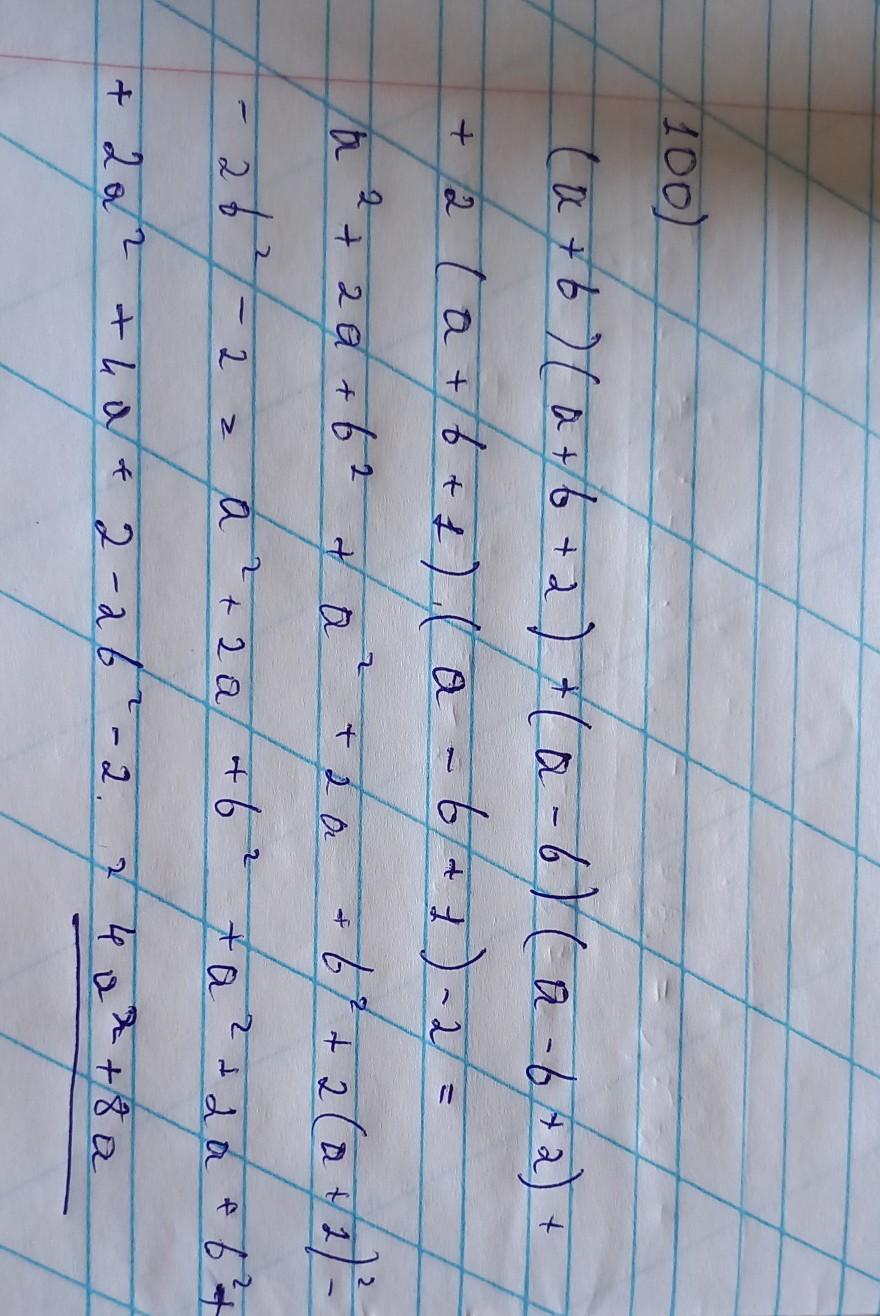 100)
(a+b)(a+b+2)+(a-b)(a-b+2)+
+2(a+b+1).(a-b+1)-2=
a²+2a+b²+a²+2a+b²+2(a+1)²-
-2b²-2=a²+2a+b²+a²+2a+b²+
+2a²+4a+2-2b²-2=4a²+8a